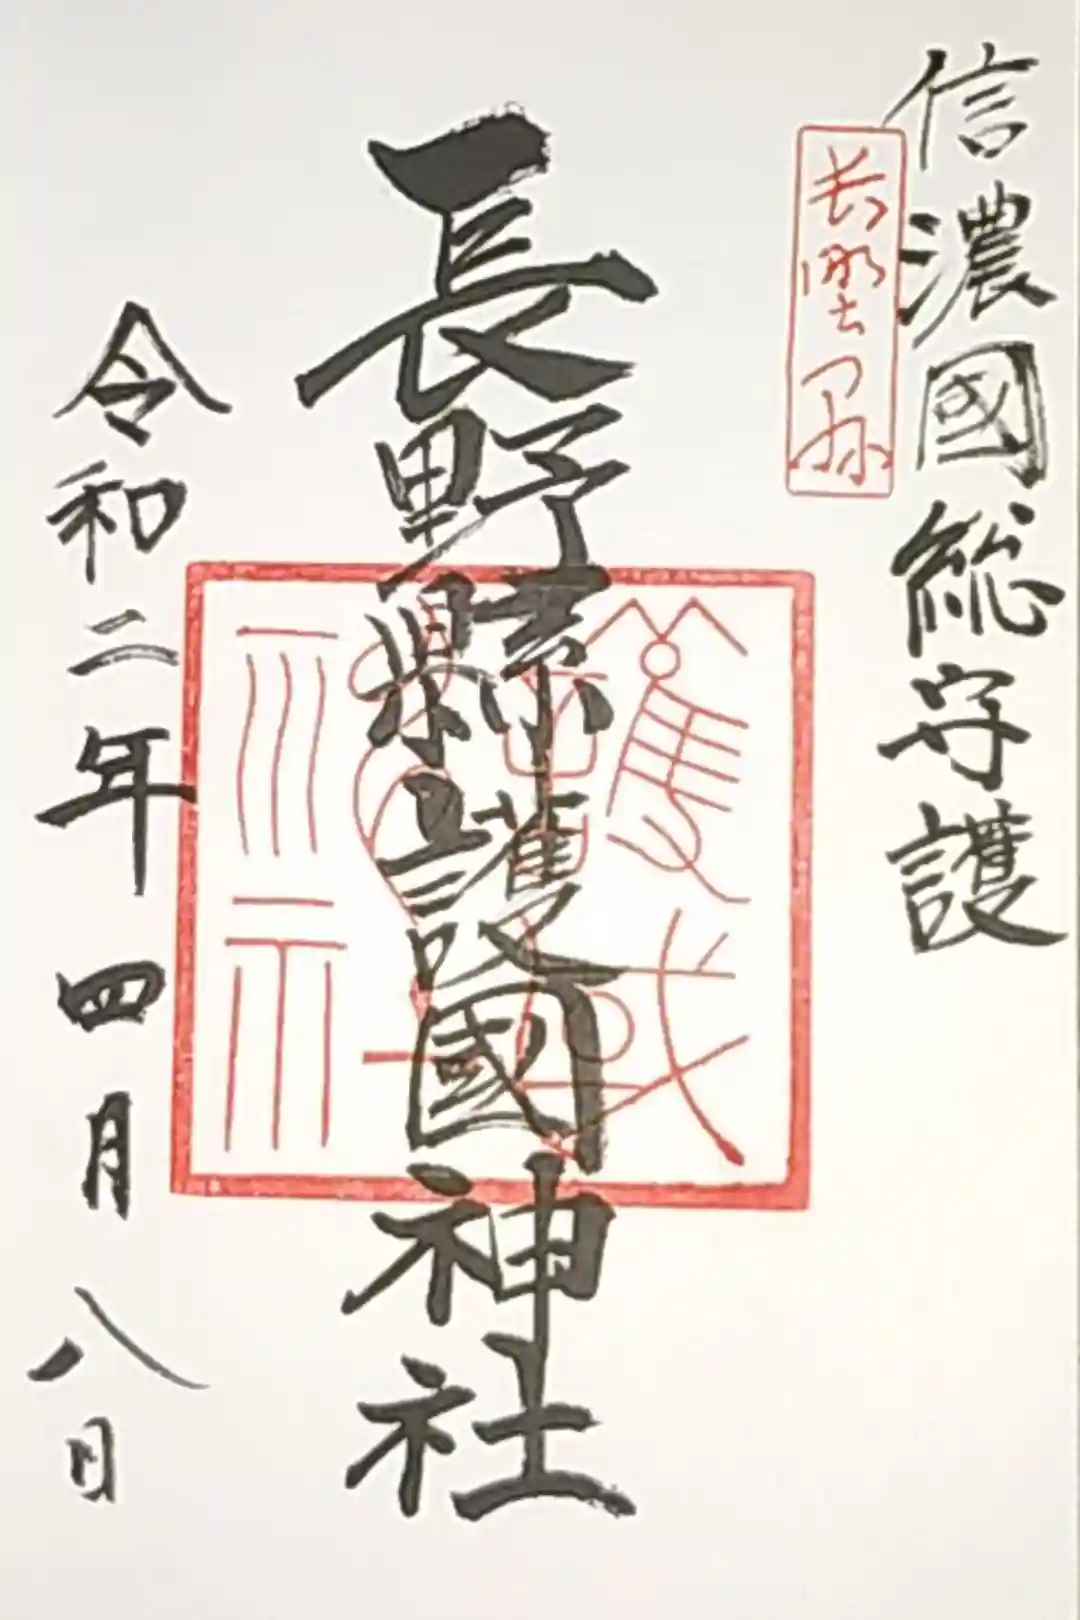 信濃國総守護
長野縣護國神社
令和二年四月八日